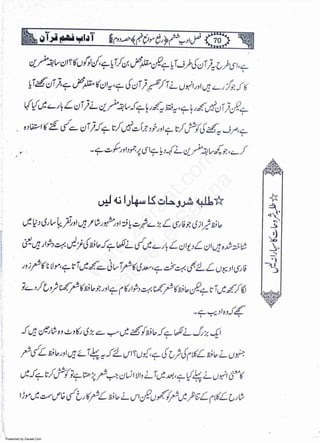 آداب فہم قرآن
70
فصل اوّل: ششم (رفع موانع فہم) حصہ دوم
ہے، اسی طرح یہ قرآن کی طرف آیا ہے لیکن مقلد محض بن کر آیا ہے، کن لوگوں کا؟ ان سابقہ مفسرین
کا کہ جو گزرے ہیں اور انہوں نے آ کر تفسیر قرآن کی ہے، یہ ان کا مقلد محض ہے، یہ قرآن سمجھنے آیا
ہے لیکن قرآن سمجھ نہیں رہا ہے، یہ فقط یہ سمجھ رہا ہے کہ سابقہ مفسرین نے قرآن کے بارے میں کیا کہا
ہے، صرف یہ سمجھنے کی کوشش کرتا ہے اور خود جرأت نہیں کرتا ہے کہ قرآن سے کسی نکتے کا استفادہ
کرے، جو کچھ سابقہ مفسرین نے کہہ دیا ہے اسی پر جمود اور سکوت ہے۔
☆طلبہ شروحات کا سہارا نہ لیں
حافظ شیرازی جو فارسی کے بڑے شہرت یافتہ اور مشہور شاعر ہیں اور تقریباً ساری دنیا میں
شناختہ شدہ ہیں ان کے دیوان کے بارے میں کسی نے لکھا ہے کہ حافظ کی غزلیں بہت دشوار ہیں یعنی
فارسی ادیبوں کے لئے بھی بہت سخت ہے، سعدی کا شعر آسانی سے سمجھ میں آتا ہے، مولانا کا شعر زور
لگا کر سمجھ میں آتا ہے لیکن حافظ کا شعر سمجھنا بہت دشوار کام ہے اور حافظ کا جو شعر سمجھنا شروع کر دے تو
سمجھو کہ وہ ادیب ہے۔
ایک بزرگ نے لکھا ہے کہ حافظ کو سمجھنے میں سب سے بڑی رکاوٹ وہ شارحین ہیں کہ
جنہوں نے حافظ کے کلام کی شرح کی ہے، کیوں؟ اس لئے کہ یہ پہلے آئے ہیں اور حافظ کے کسی شعر
کا معنی انہوں نے پہلے کیا ہے، بعد میں آنے والا انسان جب شعر پڑھتا ہے تو کوشش کرتا ہے کہ میں
شارح کے کلام کے تناظر میں شعر کو سمجھوں لیکن اس نے حافظ کے شعر کا رخ کسی خاص سمت میں موڑا
☆طلبہ شروحات کا سہارا نہ لیں
Presented by Ziaraat.Com